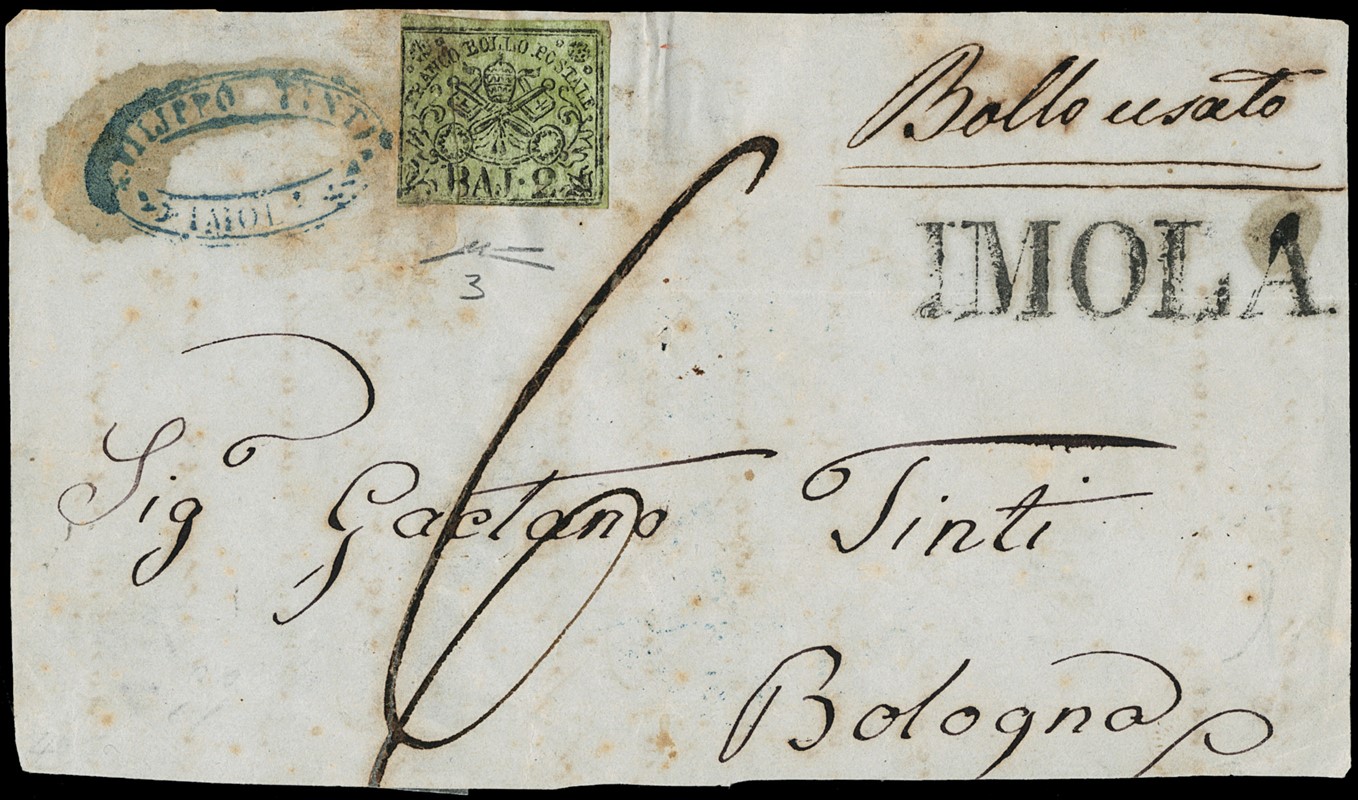 FILIPPO TINTI
IMOLA
FRANCO BOLLO POSTALE
BAJ. 2
Bollo usato
IMOLA
3
6
Sig Gaetano Tinti
Bologna